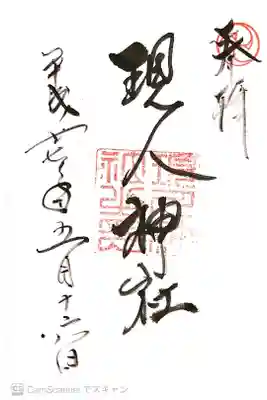 奉拝
現人神社
平成廿七年五月十六日
CamScanner でスキャン